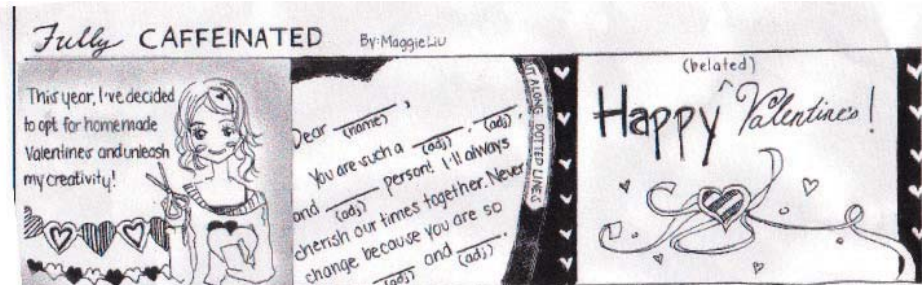 Fully CAFFEINATED By: Maggie Liu
This year, I've decided
to opt for homemade
Valentines and unleash
my creativity!
Dear ______,
(name)
You are such a ____, ____,
(adj) (adj)
and ____ person! I'll always
(adj)
cherish our times together. Never
change because you are so
____ and ____.
(adj) (adj)
CUT ALONG DOTTED LINES
(belated)
Happy ^ Valentine's!